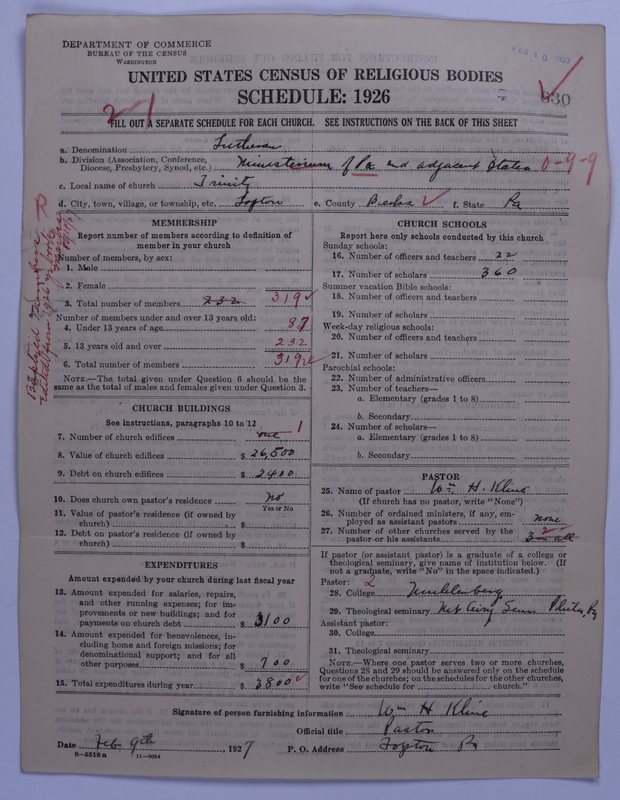 DEPARTMENT OF COMMERCE
BUREAU OF THE CENSUS
WASHINGTON
UNITED STATES CENSUS OF RELIGIOUS BODIES
SCHEDULE: 1926
2-1
630
FILL OUT A SEPARATE SCHEDULE FOR EACH CHURCH. SEE INSTRUCTIONS ON THE BACK OF THIS SHEET
a. Denomination Lutheran
b. Division (Association, Conference,
Diocese, Presbytery, Synod, etc.) Ministerium of Pa and adjacent States 0-9-9
c. Local name of church Trinity
d. City, town, village, or township, etc. Topton e. County Berks f. State Pa
MEMBERSHIP
Report number of members according to definition of
member in your church
Number of members, by sex:
1. Male
2. Female
3. Total number of members 232 319
Number of members under and over 13 years old:
4. Under 13 years of age 87
5. 13 years old and over 232
6. Total number of members 319
NOTE.—The total given under Question 6 should be the
same as the total of males and females given under Question 3.
CHURCH BUILDINGS
See instructions, paragraphs 10 to 12
7. Number of church edifices one 1
8. Value of church edifices $ 26,500
9. Debt on church edifices $ 2400
10. Does church own pastor's residence No
Yes or No
11. Value of pastor's residence (if owned by
church) $
12. Debt on pastor's residence (if owned by
church) $
EXPENDITURES
Amount expended by your church during last fiscal year
13. Amount expended for salaries, repairs,
and other running expenses; for im-
provements or new buildings; and for
payments on church debt $ 3100
14. Amount expended for benevolences, in-
cluding home and foreign missions; for
denominational support; and for all
other purposes $ 700
15. Total expenditures during year $ 3800
CHURCH SCHOOLS
Report here only schools conducted by this church
Sunday schools:
16. Number of officers and teachers 22
17. Number of scholars 360
Summer vacation Bible schools:
18. Number of officers and teachers
19. Number of scholars
Week-day religious schools:
20. Number of officers and teachers
21. Number of scholars
Parochial schools:
22. Number of administrative officers
23. Number of teachers—
a. Elementary (grades 1 to 8)
b. Secondary
24. Number of scholars—
a. Elementary (grades 1 to 8)
b. Secondary
PASTOR
25. Name of pastor Wm H. Kline
(If church has no pastor, write "None")
26. Number of ordained ministers, if any, em-
ployed as assistant pastors none
27. Number of other churches served by the
pastor or his assistants 3 in all 2
If pastor (or assistant pastor) is a graduate of a college or
theological seminary, give name of institution below. (If
not a graduate, write "No" in the space indicated.)
Pastor: 2
28. College Muhlenberg
29. Theological seminary Mt Airy Sem. Phila, Pa
Assistant pastor:
30. College
31. Theological seminary
NOTE.—Where one pastor serves two or more churches,
Questions 28 and 29 should be answered only on the schedule
for one of the churches; on the schedules for the other churches,
write "See schedule for church."
Signature of person furnishing information Wm H Kline
Official title Pastor
Date Feb. 9th, 1927 P. O. Address Topton Pa
8-5519a 11-9034